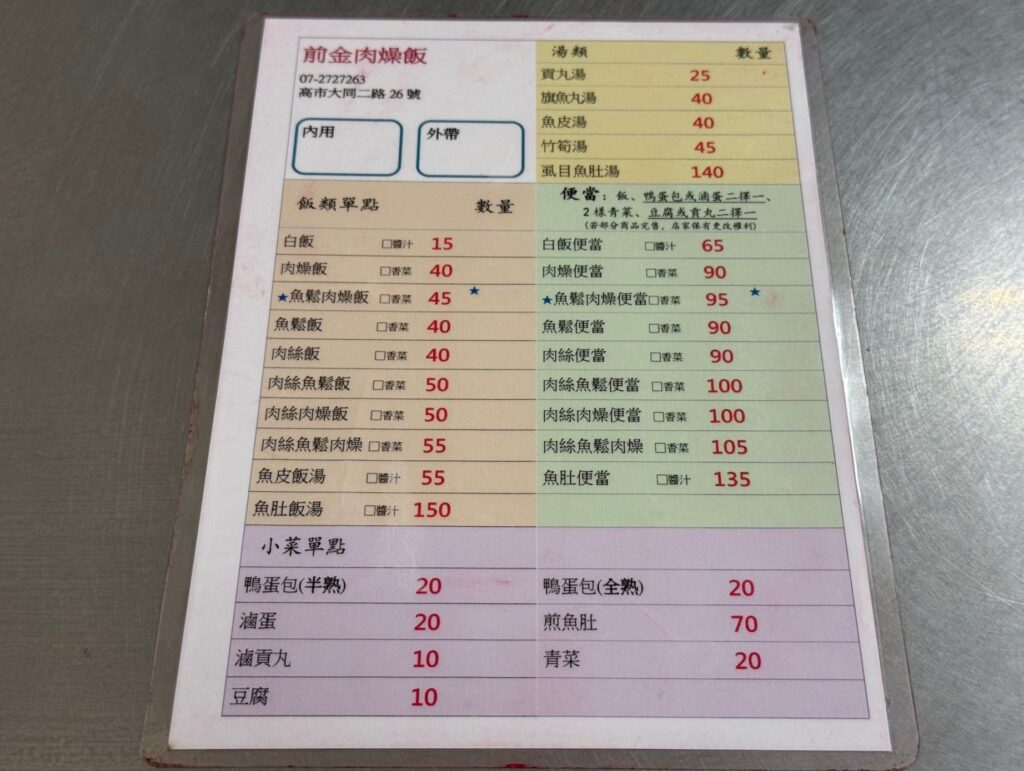 前金肉燥飯
07-2727263
高市大同二路 26 號
內用
外帶
湯類 數量
貢丸湯 25
旗魚丸湯 40
魚皮湯 40
竹筍湯 45
虱目魚肚湯 140
飯類單點 數量
白飯 □醬汁 15
肉燥飯 □香菜 40
★魚鬆肉燥飯 □香菜 45 ★
魚鬆飯 □香菜 40
肉絲飯 □香菜 40
肉絲魚鬆飯 □香菜 50
肉絲肉燥飯 □香菜 50
肉絲魚鬆肉燥 □香菜 55
魚皮飯湯 □醬汁 55
魚肚飯湯 □醬汁 150
便當：飯、鴨蛋包或滷蛋二擇一、
2 樣青菜、豆腐或貢丸二擇一
(若部分商品完售，店家保有更改權利)
白飯便當 □醬汁 65
肉燥便當 □香菜 90
★魚鬆肉燥便當□香菜 95 ★
魚鬆便當 □香菜 90
肉絲便當 □香菜 90
肉絲魚鬆便當 □香菜 100
肉絲肉燥便當 □香菜 100
肉絲魚鬆肉燥 □香菜 105
魚肚便當 □醬汁 135
小菜單點
鴨蛋包(半熟) 20
滷蛋 20
滷貢丸 10
豆腐 10
鴨蛋包(全熟) 20
煎魚肚 70
青菜 20